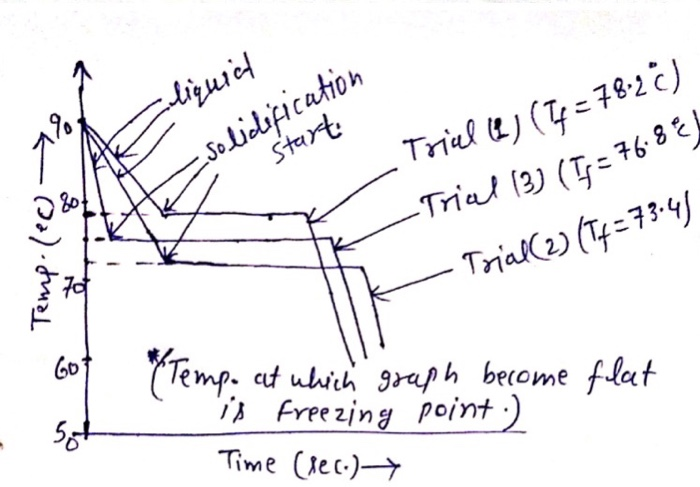 liquid
solidification
start.
Trial (1) (Tf = 78.2°c)
Trial (3) (Tf = 76.8°c)
Trial (2) (Tf = 73.4)
90
80
70
60
50
Temp. (°c) →
*(Temp. at which graph become flat
is freezing point.)
Time (sec.) →